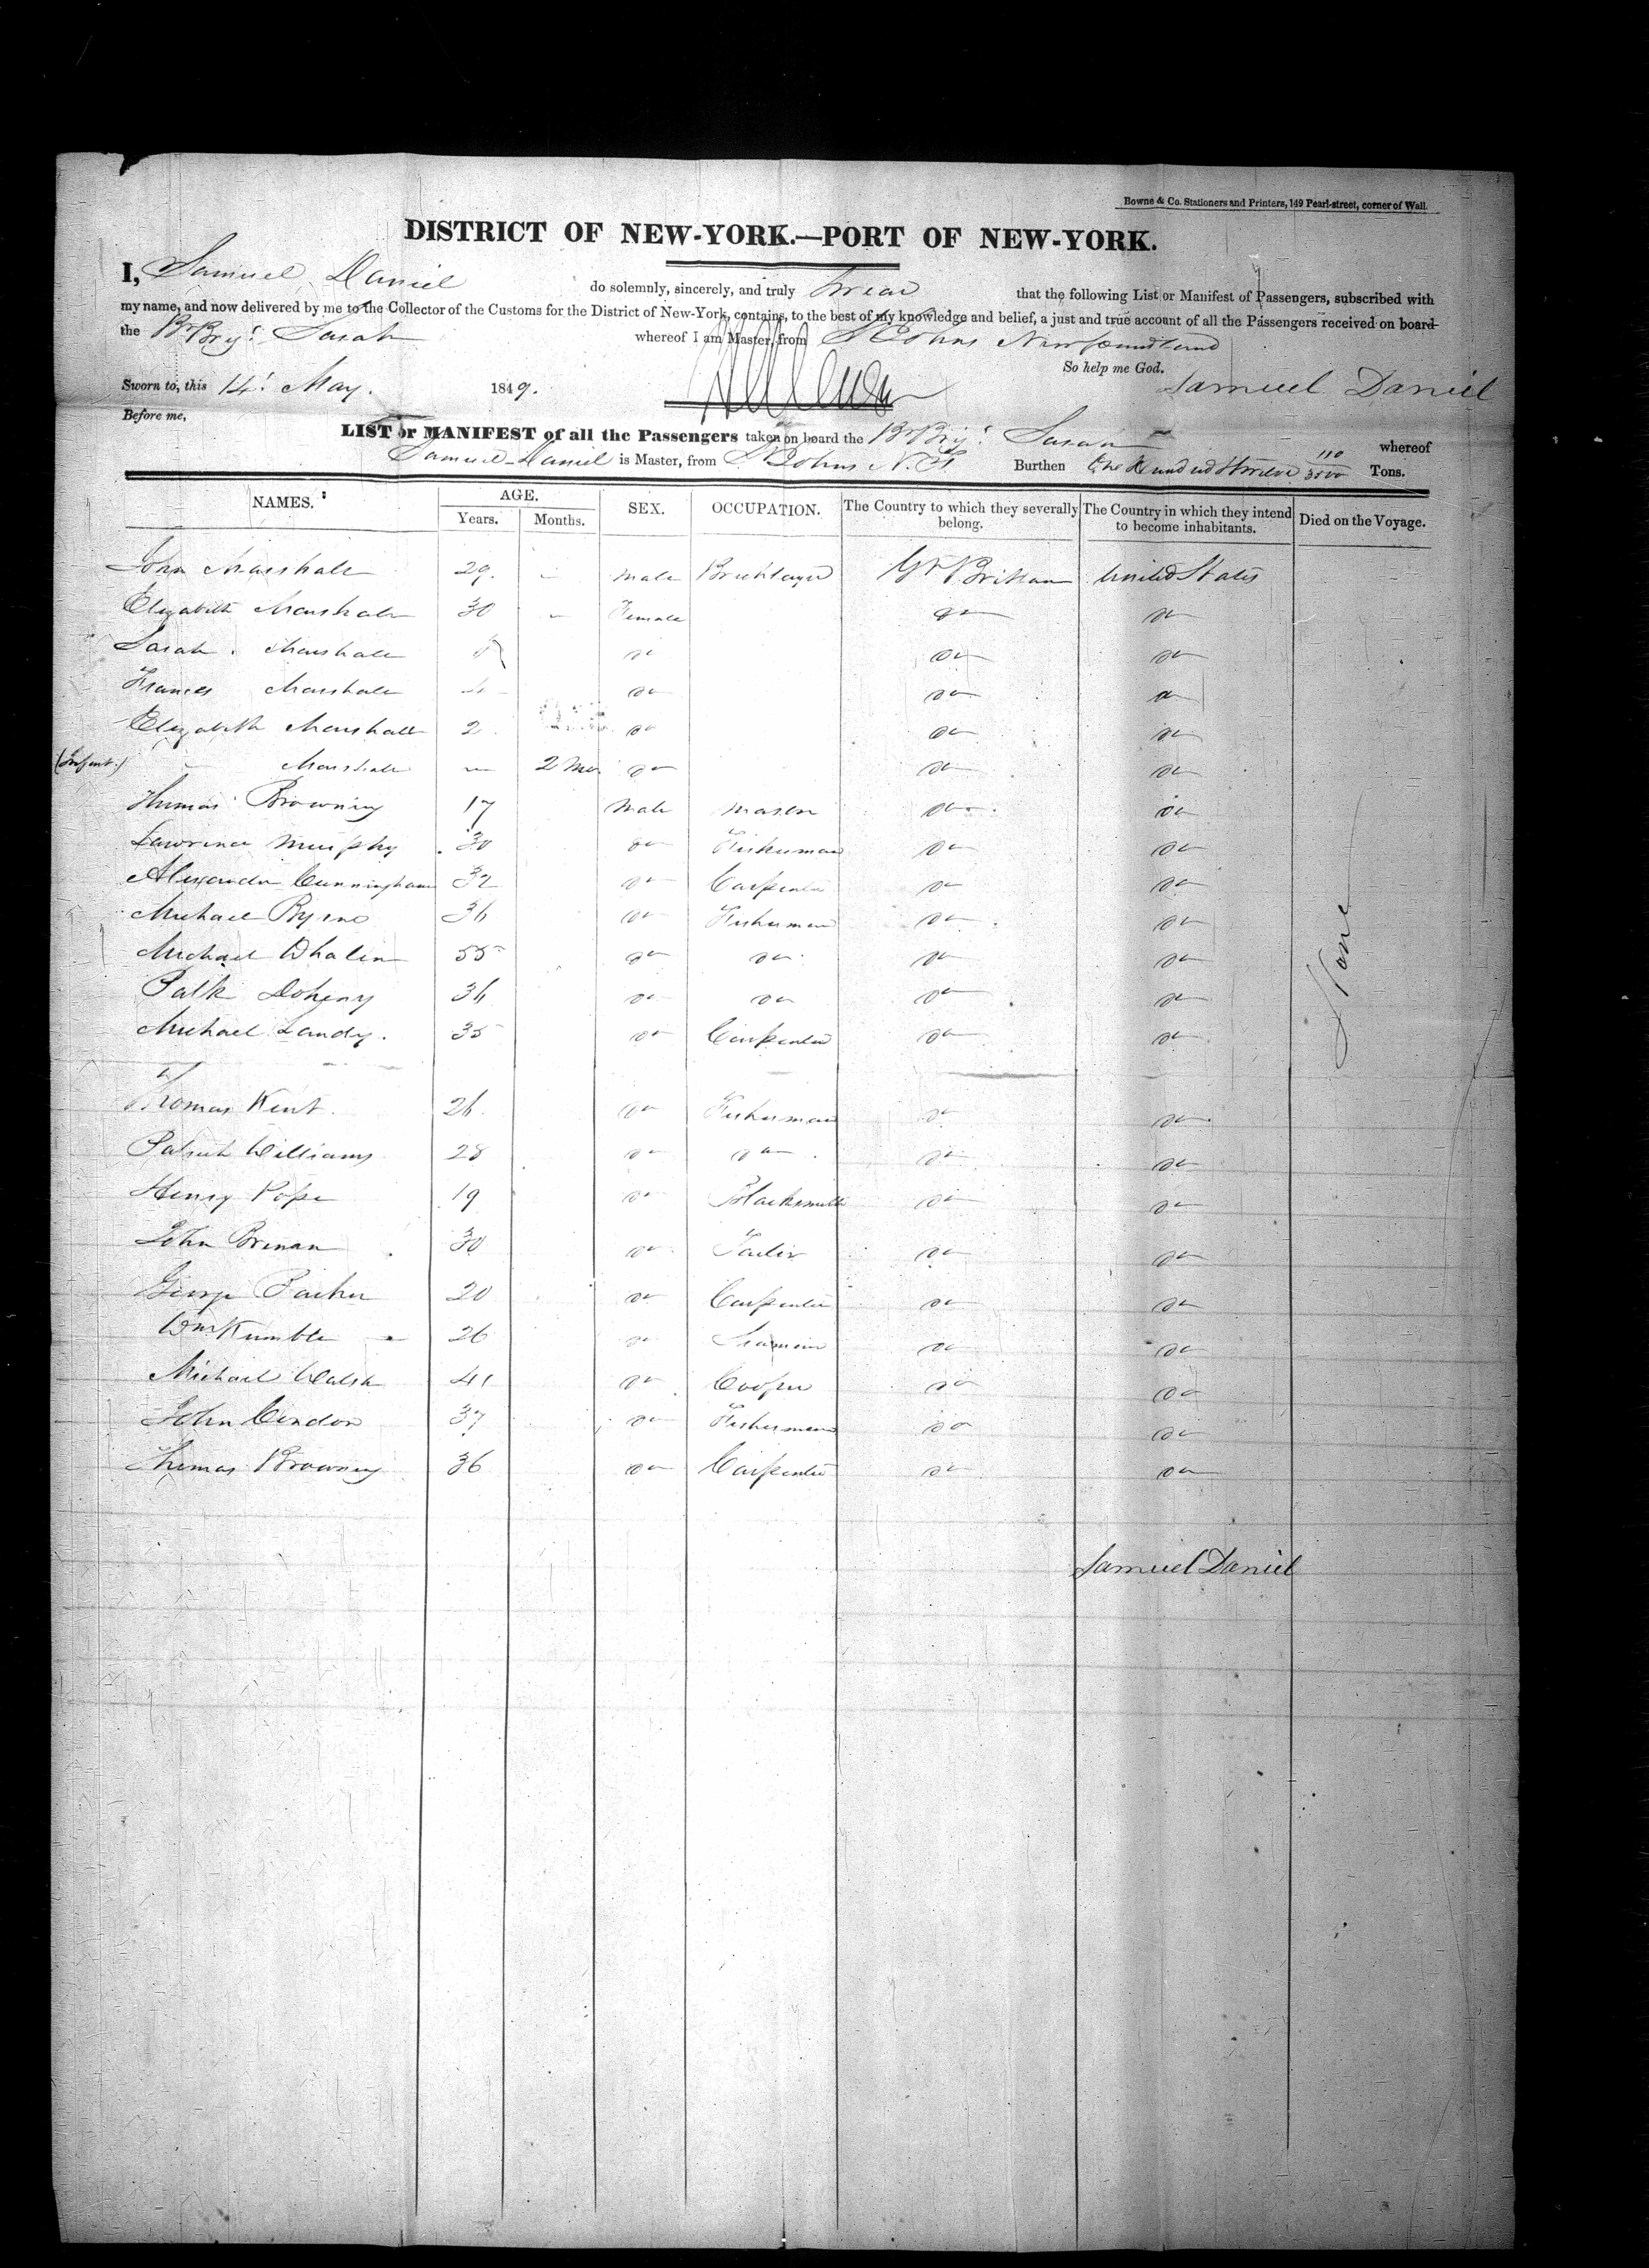 Bowne & Co. Stationers and Printers, 149 Pearl-street, corner of Wall.
DISTRICT OF NEW-YORK.—PORT OF NEW-YORK.
I, Samuel Daniel do solemnly, sincerely, and truly swear that the following List or Manifest of Passengers, subscribed with
my name, and now delivered by me to the Collector of the Customs for the District of New-York, contains, to the best of my knowledge and belief, a just and true account of all the Passengers received on board
the Br Brig: Sarah whereof I am Master, from St Johns Newfoundland
So help me God.
Sworn to, this 14: May. 1849. Samuel Daniel
Before me,
LIST or MANIFEST of all the Passengers taken on board the Br Brig: Sarah whereof
Samuel Daniel is Master, from St Johns N. F Burthen One Hundred & twelve 110/3500 Tons.
NAMES. AGE. SEX. OCCUPATION. The Country to which they severally belong. The Country in which they intend to become inhabitants. Died on the Voyage.
Years. Months.
John Marshall 29. - male Bricklayer Gt Brittan United States
Elizabeth Marshall 30 - Female do do
Sarah Marshall do do do
Frances Marshall 4 - do do do
Elizabeth Marshall 2 do do do
(Infant.) - Marshall - 2 Mos do do do
Thomas Browning 17 Male Mason do do
Lawrence Murphy 30 do Fisherman do do
Alexander Cunningham 32 do Carpenter do do
Michael Byrne 36 do Fisherman do do
Michael Whalen 55 do do do do
Patk Doheny 36 do do do do
Michael Landy. 35 do Carpenter do do
None
Thomas Kent. 26. do Fisherman do do
Patrick Williams 28 do do do do
Henry Pope 19 do Blacksmith do do
John Brenan 30 do Tailor do do
George Parker 20 do Carpenter do do
Wm Kumble 26 do Seaman do do
Michael Walsh 41 do Cooper do do
John Condon 37 do Fisherman do do
Thomas Browning 36 do Carpenter do do
Samuel Daniel